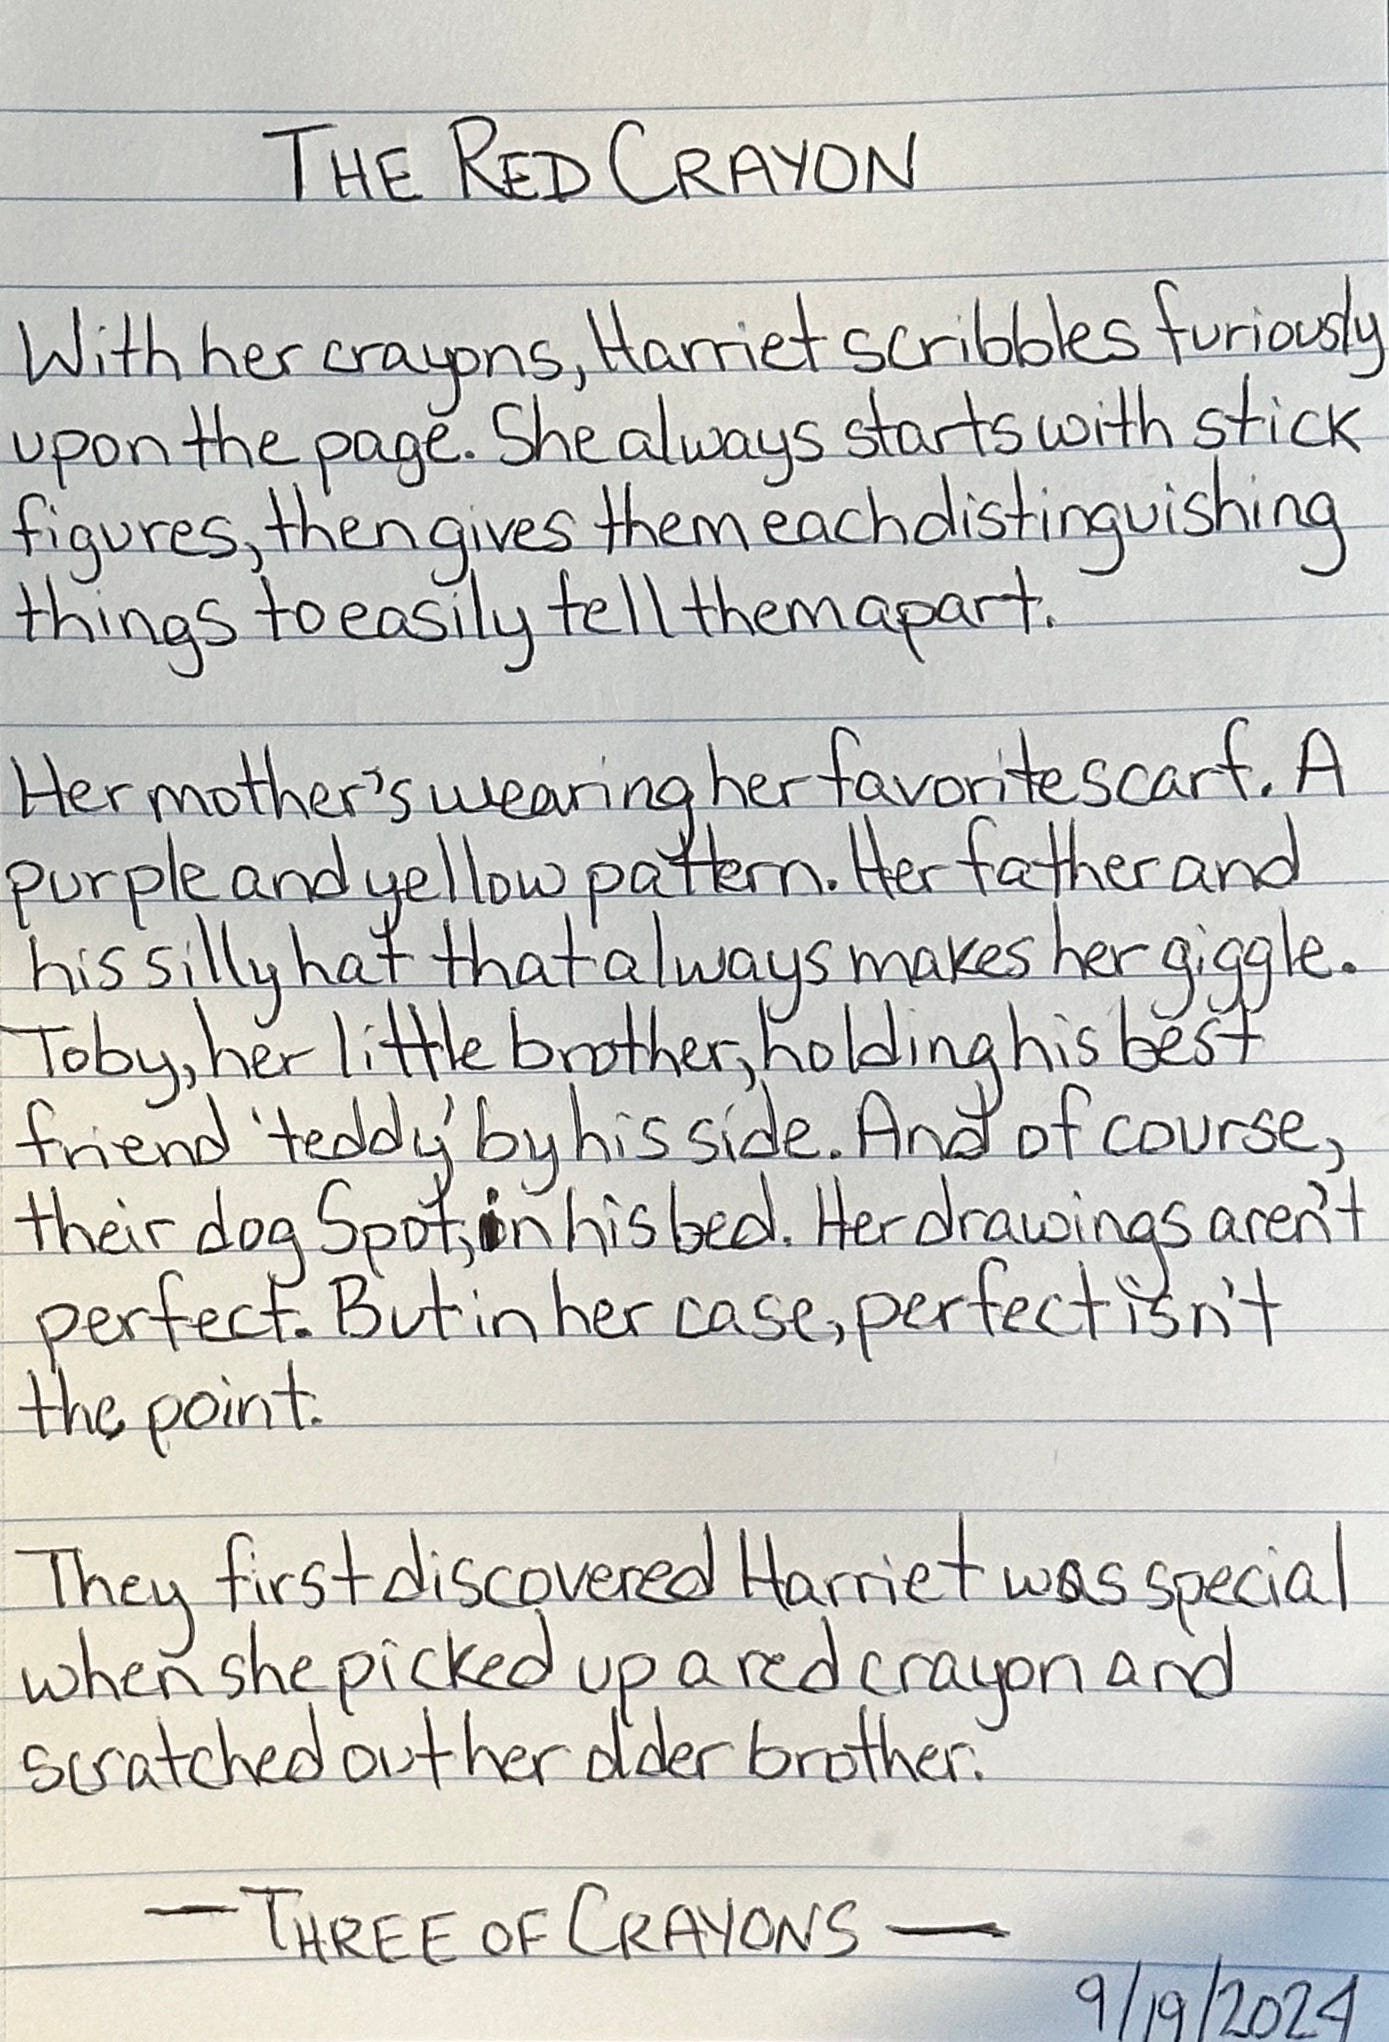 THE RED CRAYON
With her crayons, Harriet scribbles furiously
upon the page. She always starts with stick
figures, then gives them each distinguishing
things to easily tell them apart.
Her mother's wearing her favorite scarf. A
purple and yellow pattern. Her father and
his silly hat that always makes her giggle.
Toby, her little brother, holding his best
friend 'teddy' by his side. And of course,
their dog Spot, in his bed. Her drawings aren't
perfect. But in her case, perfect isn't
the point.
They first discovered Harriet was special
when she picked up a red crayon and
scratched out her older brother.
— THREE OF CRAYONS —
9/19/2024